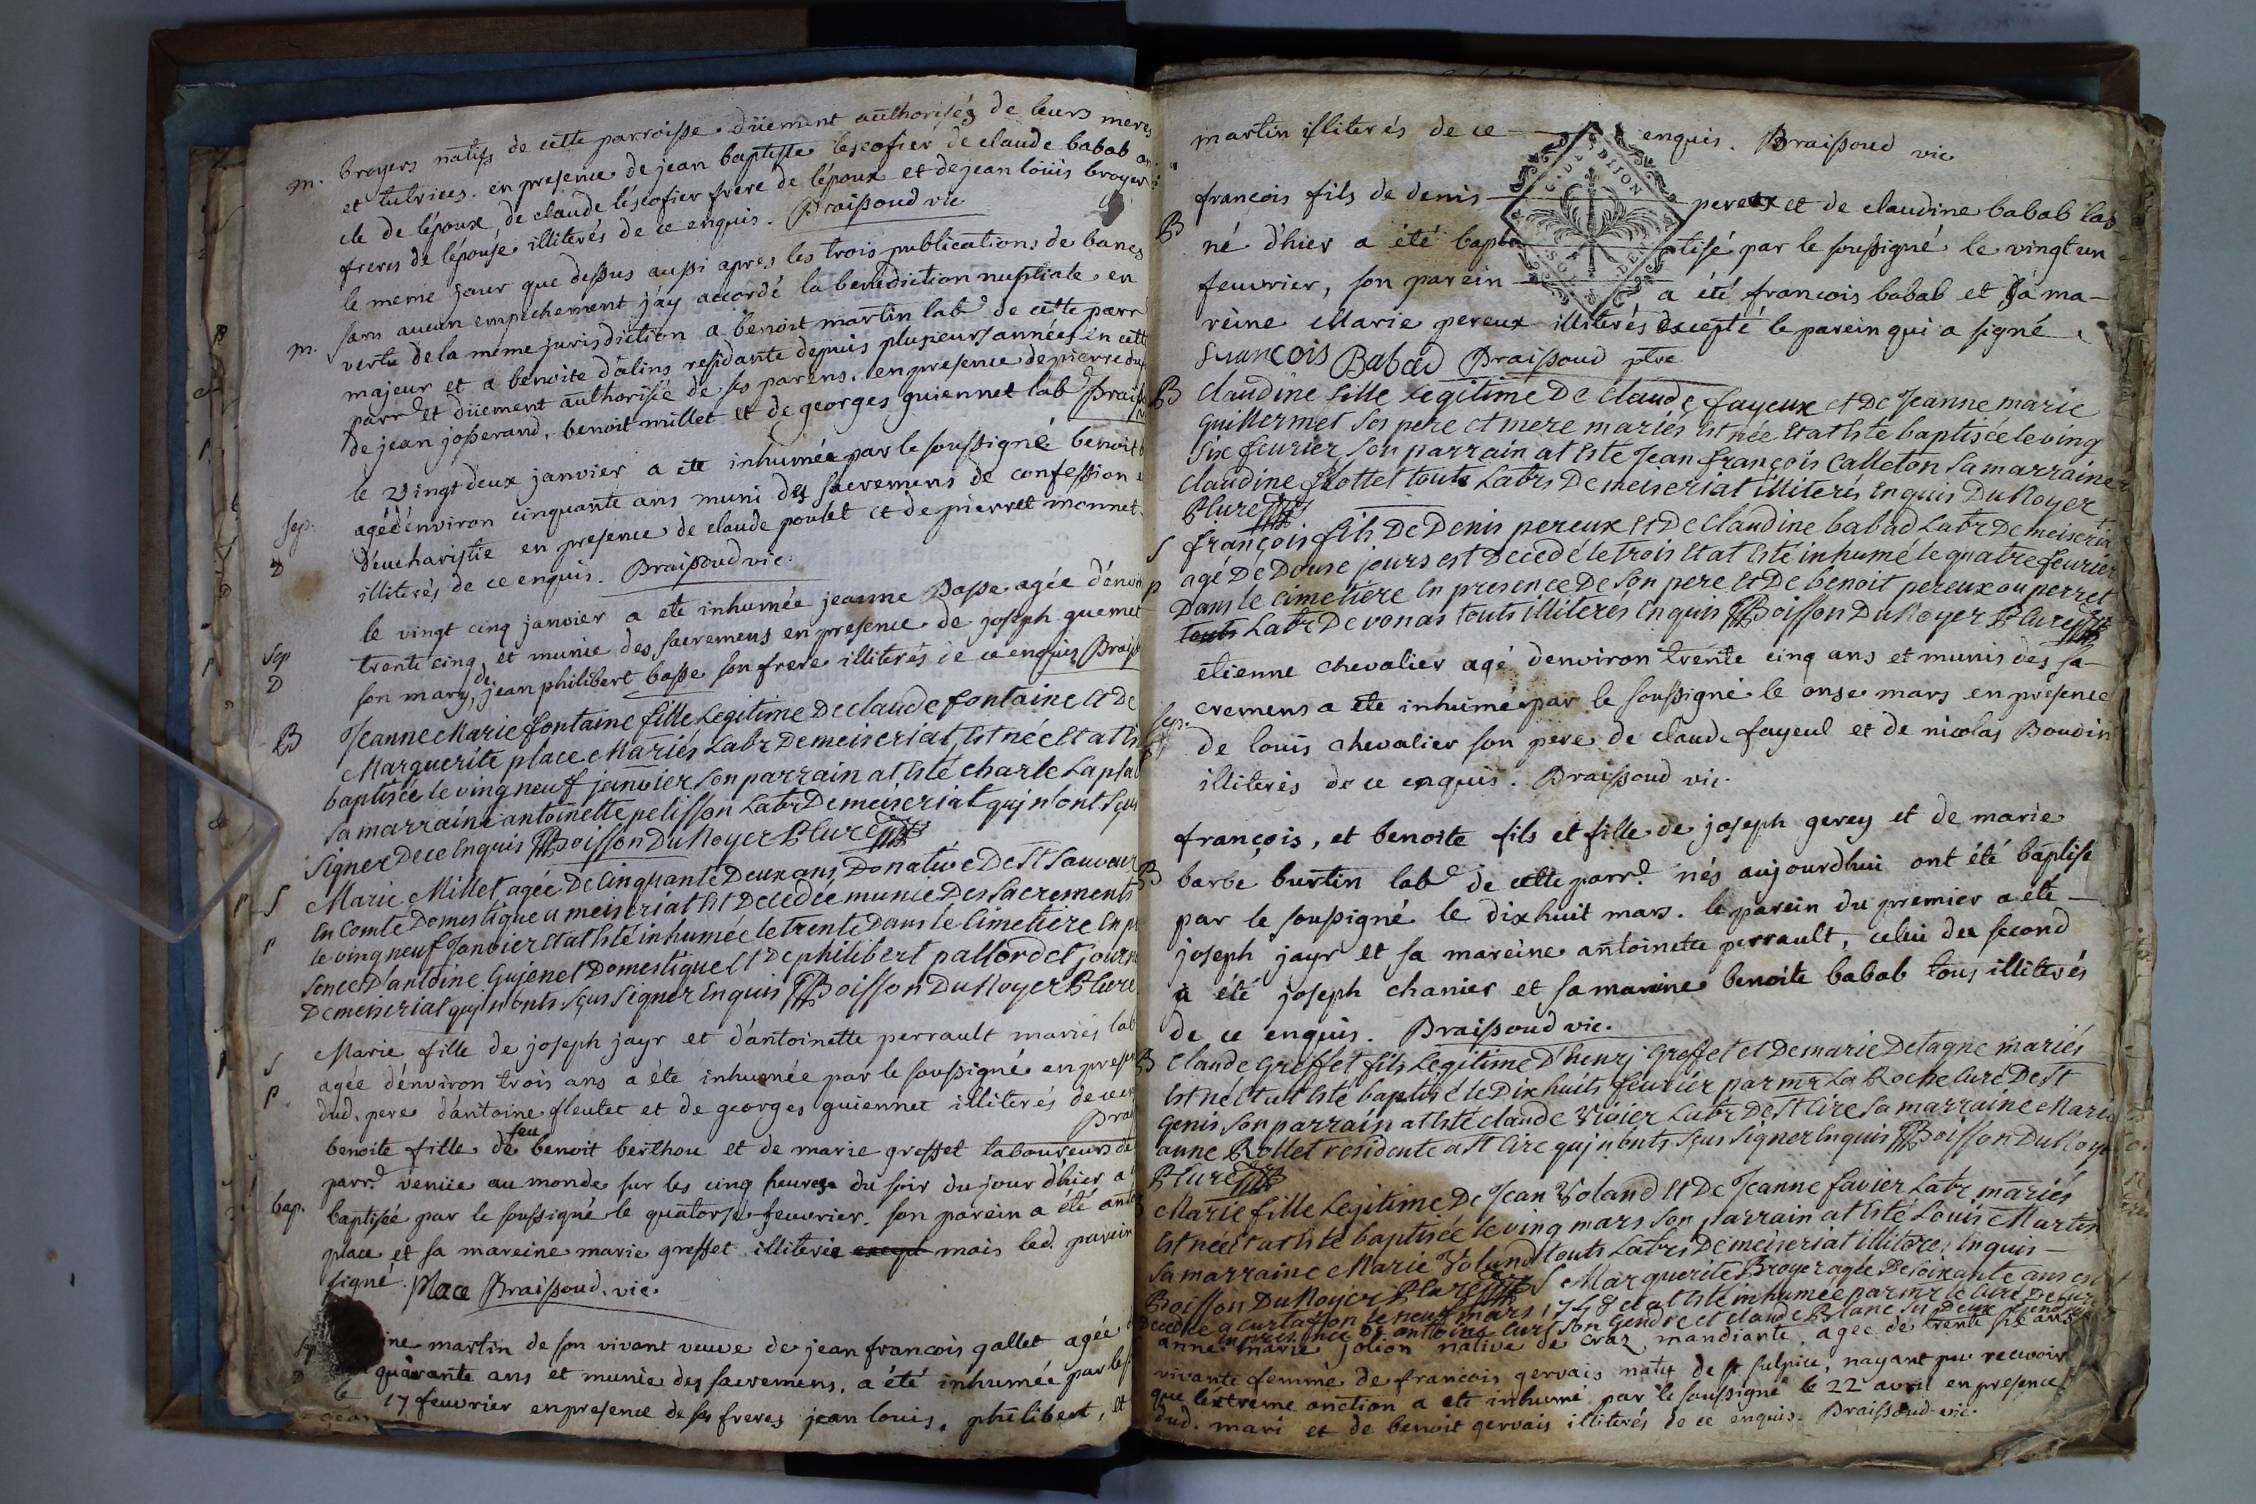 m. broyers natifs de cette parroisse. düement authorisés de leurs meres
et tutrices. en presence de jean baptiste lescofier de claude babab on-
cle de l'époux, de claude léscofier frere de l'époux et de jean loüis broyer
freres de l'épouse illiterés de ce enquis. Braissoud vic
le meme jour que dessus aussi apres les trois publications de bancs
m. sans aucun empechement j'ay accordé la benediction nuptiale en
vertu de la meme jurisdiction a benoist martin lab.r de cette parr
majeur et a benoite d'alins residante depuis plusieurs années en cette
parr.e et düement authorisée de ses parens. en presence de pierre
de jean josserand, benoit millet et de georges guiennet lab.r
le vingt deux janvier a ete inhumée par le soussigné benoit
sep. agée d'environ cinquante ans muni des sacremens de confession
D d'eucharistie en presence de claude poulet et de pierret monnet
illiterés de ce enquis. Braissoud vic.
le vingt cinq janvier a ete inhumée jeanne Basse agée d'envi
sep trente cinq et munie des sacremens en presence de joseph guemet
D son mary, de jean philibert basse son frere illiterés de ce enquis
B Jeanne Marie fontaine fille Legitime De claude fontaine Et De
Marguerite place Mariés Labr Demeiseriat, Est née Et at Es
baptisée le ving neuf janvier son parrain at Esté charle Lapla
sa marraine antoinette pelisson Labr Demeiseriat quj n'ont sçus
signer De ce Enquis Boisson DuNoyer P. Curé
S Marie Millet agée De Cinquante Deux ans, Donative De St Sauveur
En Comté Domestique a meiseriat Est Decedée munie Des Sacrements
p le ving neuf Janvier Et at Esté inhumée le trente Dans le Cimetiere En pr
sence D'antoine Gujenet Domestique Et De philibert pallord et journ
De meiseriat quj n'onts sçus signer Enquis Boisson DuNoyer P. Curé
S Marie fille de joseph jayr et d'antoinette perrault mariés lab
p. agée d'environ trois ans a éte inhumée par le soussigné en presen
dud. pere d'antoine fleutet et de georges guiennet illiterés de ce en
Brai
benoite fille de feu benoit berthou et de marie greffet laboureurs de
parr.e venüe au monde sur les cinq heures du soir du jour d'hier a
bap. baptisée par le soussigné le quatorse feuvrier. son parein a été
place et sa mareine marie greffet illiterée except mais led. parein
signé. Place Braissoud. vic.
ine martin de son vivant veuve de jean francois gallet agée
quarante ans et munie des sacremens, a été inhumée par le
le 17 feuvrier en presence de ses freres jean louis, philibert, et
martin illiterés de ce enquis. Braissoud vic
C. DES DIJON
SOL DE
francois fils de denis pereux et de claudine babab lab
B né d'hier a été bap tisé par le soussigné le vingt un
feuvrier, son parein a été francois babab et sa ma-
reine Marie pereux illiterés excepté le parein qui a signé
François Babad Braissoud ptre
B Claudine fille Legitime De Claude fayeux et De Jeanne marie
Guillermet ses pere et mere mariés Est née Et at Este baptisée le ving
Six feurier Son parrain at Esté Jean françois Calleton Sa marraine
Claudine Flottet touts Labrs De meiseriat illiterés Enquis DuNoyer
P. Curé
S françois fils De Denis pereux Et De Claudine babad Labr De meiseria
p agé De Douse jours est Decedé le trois Et at Esté inhumé le quatre feurier
Dans le Cimetiere En presence De Son pere Et De benoit pereux ou perret
touts Labr De vonas touts illiterés Enquis Boisson DuNoyer P. Curé
etienne chevalier agé d'environ trente cinq ans et munis des sa-
sep. cremens a ete inhumée par le soussigné le onse mars en presence
de louis chevalier son pere de claude fayeul et de nicolas Boudin
illiterés de ce enquis. Braissoud vic.
françois, et benoite fils et fille de joseph gerey et de marie
B barbe burtin lab.r de cette parr.e nés aujourdhui ont été baptisé
par le soussigné le dixhuit mars. le parein du premier a été
joseph jayr et sa mareine antoinette perrault, celui du second
a été joseph chanier et sa mareine benoite babab tous illiterés
de ce enquis. Braissoud vic.
B Claude Greffet fils Legitime D'henrj Greffet et De marie Detagne mariés
Est né Et at Esté baptisé le Dix huits feurier par mr La Roche Curé De St
Genis Son parrain at Esté Claude Vivier Labr De St Cire Sa marraine Marie
anne Rollet residente a St Cire quj n'onts Sçus Signer Enquis Boisson DuNoye
P. Curé
Marie fille Legitime De Jean Voland Et De Jeanne favier Labr mariés
Est née Et at Esté baptisée le ving mars Son parrain at Esté Louis Martin
Sa marraine Marie Voland touts Labrs De meiseriat illiteres Enquis
Boisson DuNoyer P. Curé S Marguerite Broyer agée De Soixante ans est
Decedée a Curtafon le neuf mars 1748 et at Esté inhumée par mr le Curé De
en presence De antoine Curt Son Gendre et Claude Blanc
anne marie jolion native de Craz mandiante, agée de trente six ans
vivante femme de francois gervais natif de st sulpice, nayant pu recevoir
que l'extreme onction a ete inhumé par le soussigné le 22 avril en presence
dud. mari et de benoit gervais illiterés de ce enquis. Braissoud vic.